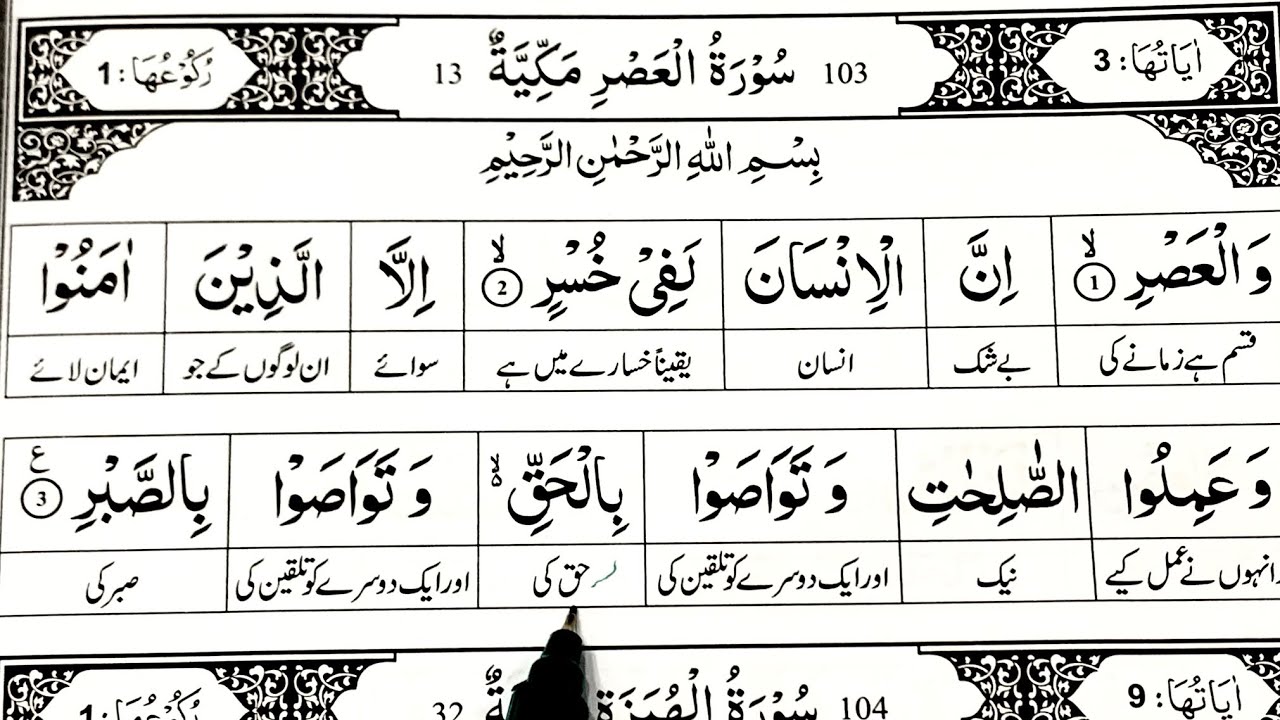 اٰيَاتُهَا: 3 103 سُوْرَةُ الْعَصْرِ مَكِّيَّةٌ 13 رُكُوْعُهَا: 1
بِسْمِ اللّٰهِ الرَّحْمٰنِ الرَّحِيْمِ
وَالْعَصْرِ ۙ 1 اِنَّ الْاِنْسَانَ لَفِيْ خُسْرٍ ۙ 2 اِلَّا الَّذِيْنَ اٰمَنُوْا
قسم ہے زمانے کی بے شک انسان یقیناً خسارے میں ہے سوائے ان لوگوں کے جو ایمان لائے
وَ عَمِلُوا الصّٰلِحٰتِ وَ تَوَاصَوْا بِالْحَقِّ ۙ۬ وَ تَوَاصَوْا بِالصَّبْرِ ع 3
انہوں نے عمل کیے نیک اور ایک دوسرے کو تلقین کی حق کی اور ایک دوسرے کو تلقین کی صبر کی
اٰيَاتُهَا: 9 104 سُوْرَةُ الْهُمَزَةِ 32 رُكُوْعُهَا: 1